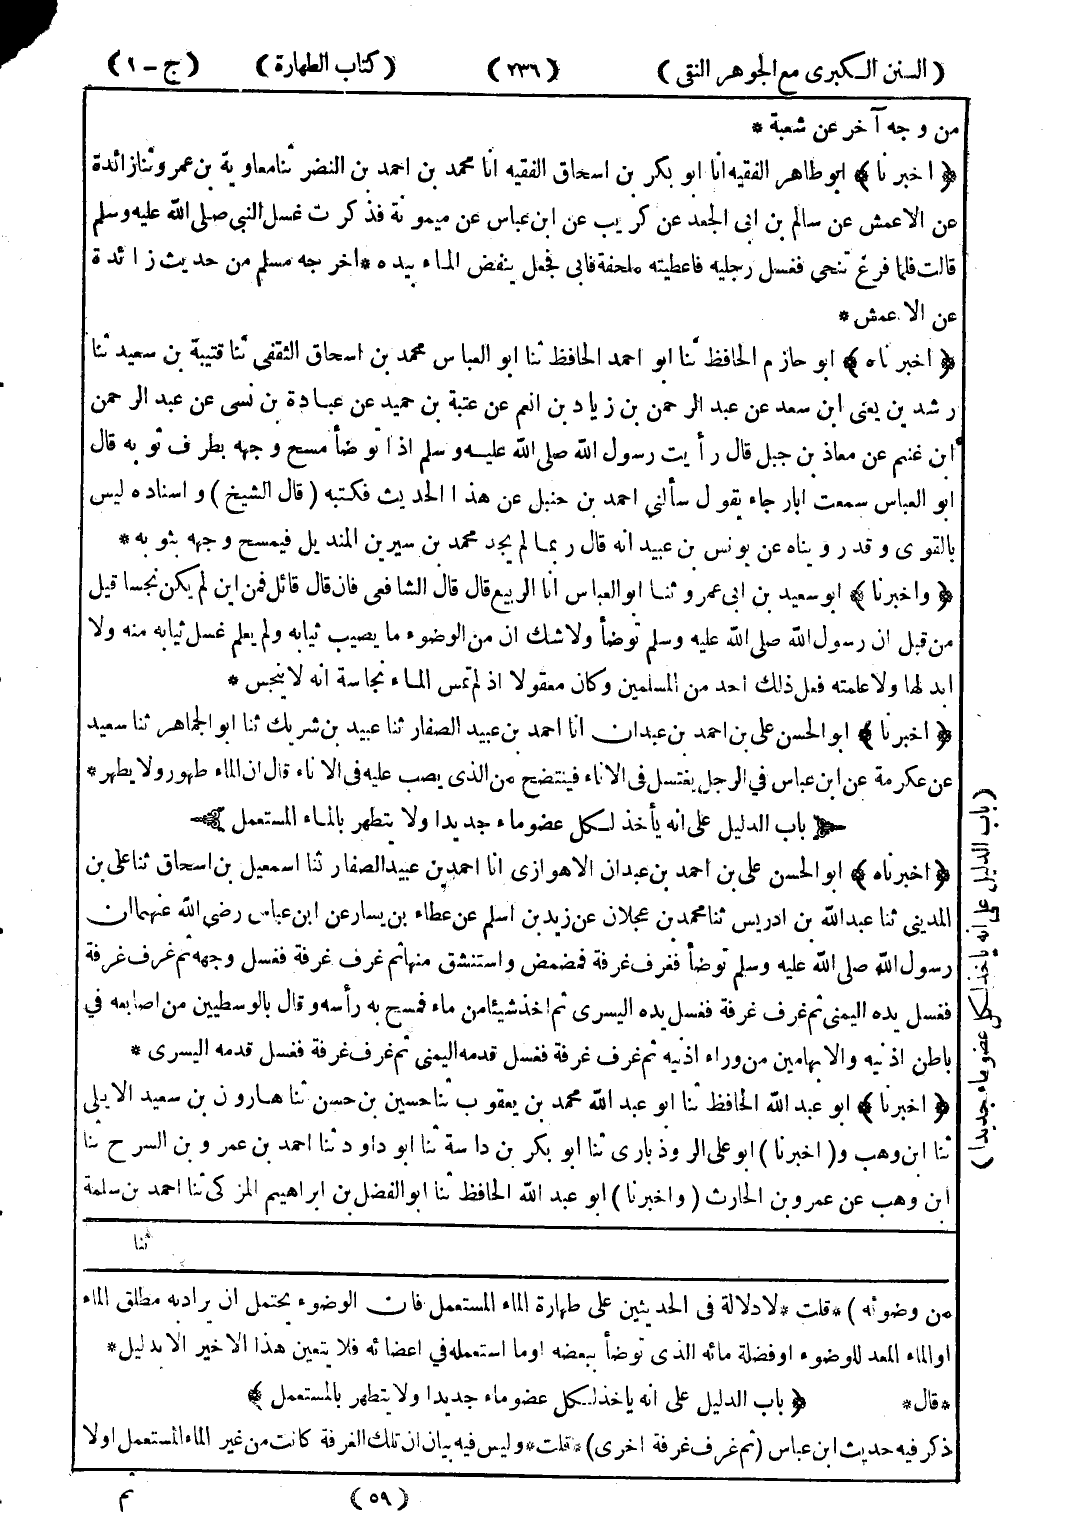 (السنن الكبرى مع الجوهر النقى) (٢٣٦) (كتاب الطهارة) (ج - ١)
من وجه آخر عن شعبة *
﴿اخبرنا﴾ ابو طاهر الفقيه انا ابو بكر بن اسحاق الفقيه انا محمد بن احمد بن النضر ثنا معاوية بن عمرو ثنا زائدة
عن الاعمش عن سالم بن ابى الجعد عن كريب عن ابن عباس عن ميمونة فذكرت غسل النبي صلى الله عليه وسلم
قالت فلما فرغ تنحى فغسل رجليه فاعطيته ملحفة فابى فجعل ينفض الماء بيده * اخرجه مسلم من حديث زائدة
عن الاعمش *
﴿اخبرناه﴾ ابو حازم الحافظ ثنا ابو احمد الحافظ ثنا ابو العباس محمد بن اسحاق الثقفى ثنا قتيبة بن سعيد ثنا
رشدين يعنى ابن سعد عن عبد الرحمن بن زياد بن انعم عن عتبة بن حميد عن عبادة بن نسى عن عبد الرحمن
ابن غنم عن معاذ بن جبل قال رأيت رسول الله صلى الله عليه وسلم اذا توضأ مسح وجهه بطرف ثوبه قال
ابو العباس سمعت ابا رجاء يقول سألني احمد بن حنبل عن هذا الحديث فكتبه (قال الشيخ) و اسناده ليس
بالقوى وقد روينا ه عن يونس بن عبيد انه قال ربما لم يجد محمد بن سيرين المنديل فيمسح وجهه بثوبه *
﴿واخبرنا﴾ ابو سعيد بن ابى عمرو ثنا ابو العباس انا الربيع قال قال الشافعى فان قال قائل فمن اين لم يكن نجسا قيل
من قبل ان رسول الله صلى الله عليه وسلم توضأ ولا شك ان من الوضوء ما يصيب ثيابه ولم يعلم غسل ثيابه منه ولا
ابدلها ولا علمته فعل ذلك احد من المسلمين وكان معقولا اذ لم تمس الماء نجاسة انه لا ينجس *
﴿اخبرنا﴾ ابو الحسن على بن احمد بن عبدان انا احمد بن عبيد الصفار ثنا عبيد بن شريك ثنا ابو الجماهر ثنا سعيد
عن عكرمة عن ابن عباس في الرجل يغتسل فى الاناء فينتضح من الذى يصب عليه فى الاناء قال ان الماء طهور ولا يطهر *
باب الدليل على انه يأخذ لكل عضو ماء جديدا ولا يتطهر بالماء المستعمل
﴿اخبرناه﴾ ابو الحسن على بن احمد بن عبدان الاهوازى انا احمد بن عبيد الصفار ثنا اسمعيل بن اسحاق ثنا على بن
المدينى ثنا عبد الله بن ادريس ثنا محمد بن عجلان عن زيد بن اسلم عن عطاء بن يسار عن ابن عباس رضى الله عنهما ان
رسول الله صلى الله عليه وسلم توضأ فغرف غرفة فمضمض واستنشق منها ثم غرف غرفة فغسل وجهه ثم غرف غرفة
فغسل يده اليمنى ثم غرف غرفة فغسل يده اليسرى ثم اخذ شيئا من ماء فمسح به رأسه وقال بالوسطيين من اصابعه في
باطن اذنيه والابهامين من وراء اذنيه ثم غرف غرفة فغسل قدمه اليمنى ثم غرف غرفة فغسل قدمه اليسرى *
﴿اخبرنا﴾ ابو عبد الله الحافظ ثنا ابو عبد الله محمد بن يعقوب ثنا حسين بن حسن ثنا هارون بن سعيد الايلى
ثنا ابن وهب و (اخبرنا) ابو على الروذبارى ثنا ابو بكر بن داسة ثنا ابو داود ثنا احمد بن عمرو بن السرح ثنا
ابن وهب عن عمرو بن الحارث (واخبرنا) ابو عبد الله الحافظ ثنا ابو الفضل بن ابراهيم المزكى ثنا احمد بن سلمة
ثنا
(باب الدليل على انه ياخذ لكل عضو ماء جديدا)
من وضوئه) * قلت * لا دلالة فى الحديثين على طهارة الماء المستعمل فان الوضوء يحتمل ان يراد به مطلق الماء
او الماء المعد للوضوء او فضلة مائه الذى توضأ ببعضه او ما استعمله في اعضائه فلا يتعين هذا الاخير الا بدليل *
* قال * ﴿باب الدليل على انه ياخذ لكل عضو ماء جديدا ولا يتطهر بالمستعمل﴾
ذكر فيه حديث ابن عباس (ثم غرف غرفة اخرى) * قلت * وليس فيه بيان ان تلك الغرفة كانت من غير الماء المستعمل اولا
(٥٩) ثم